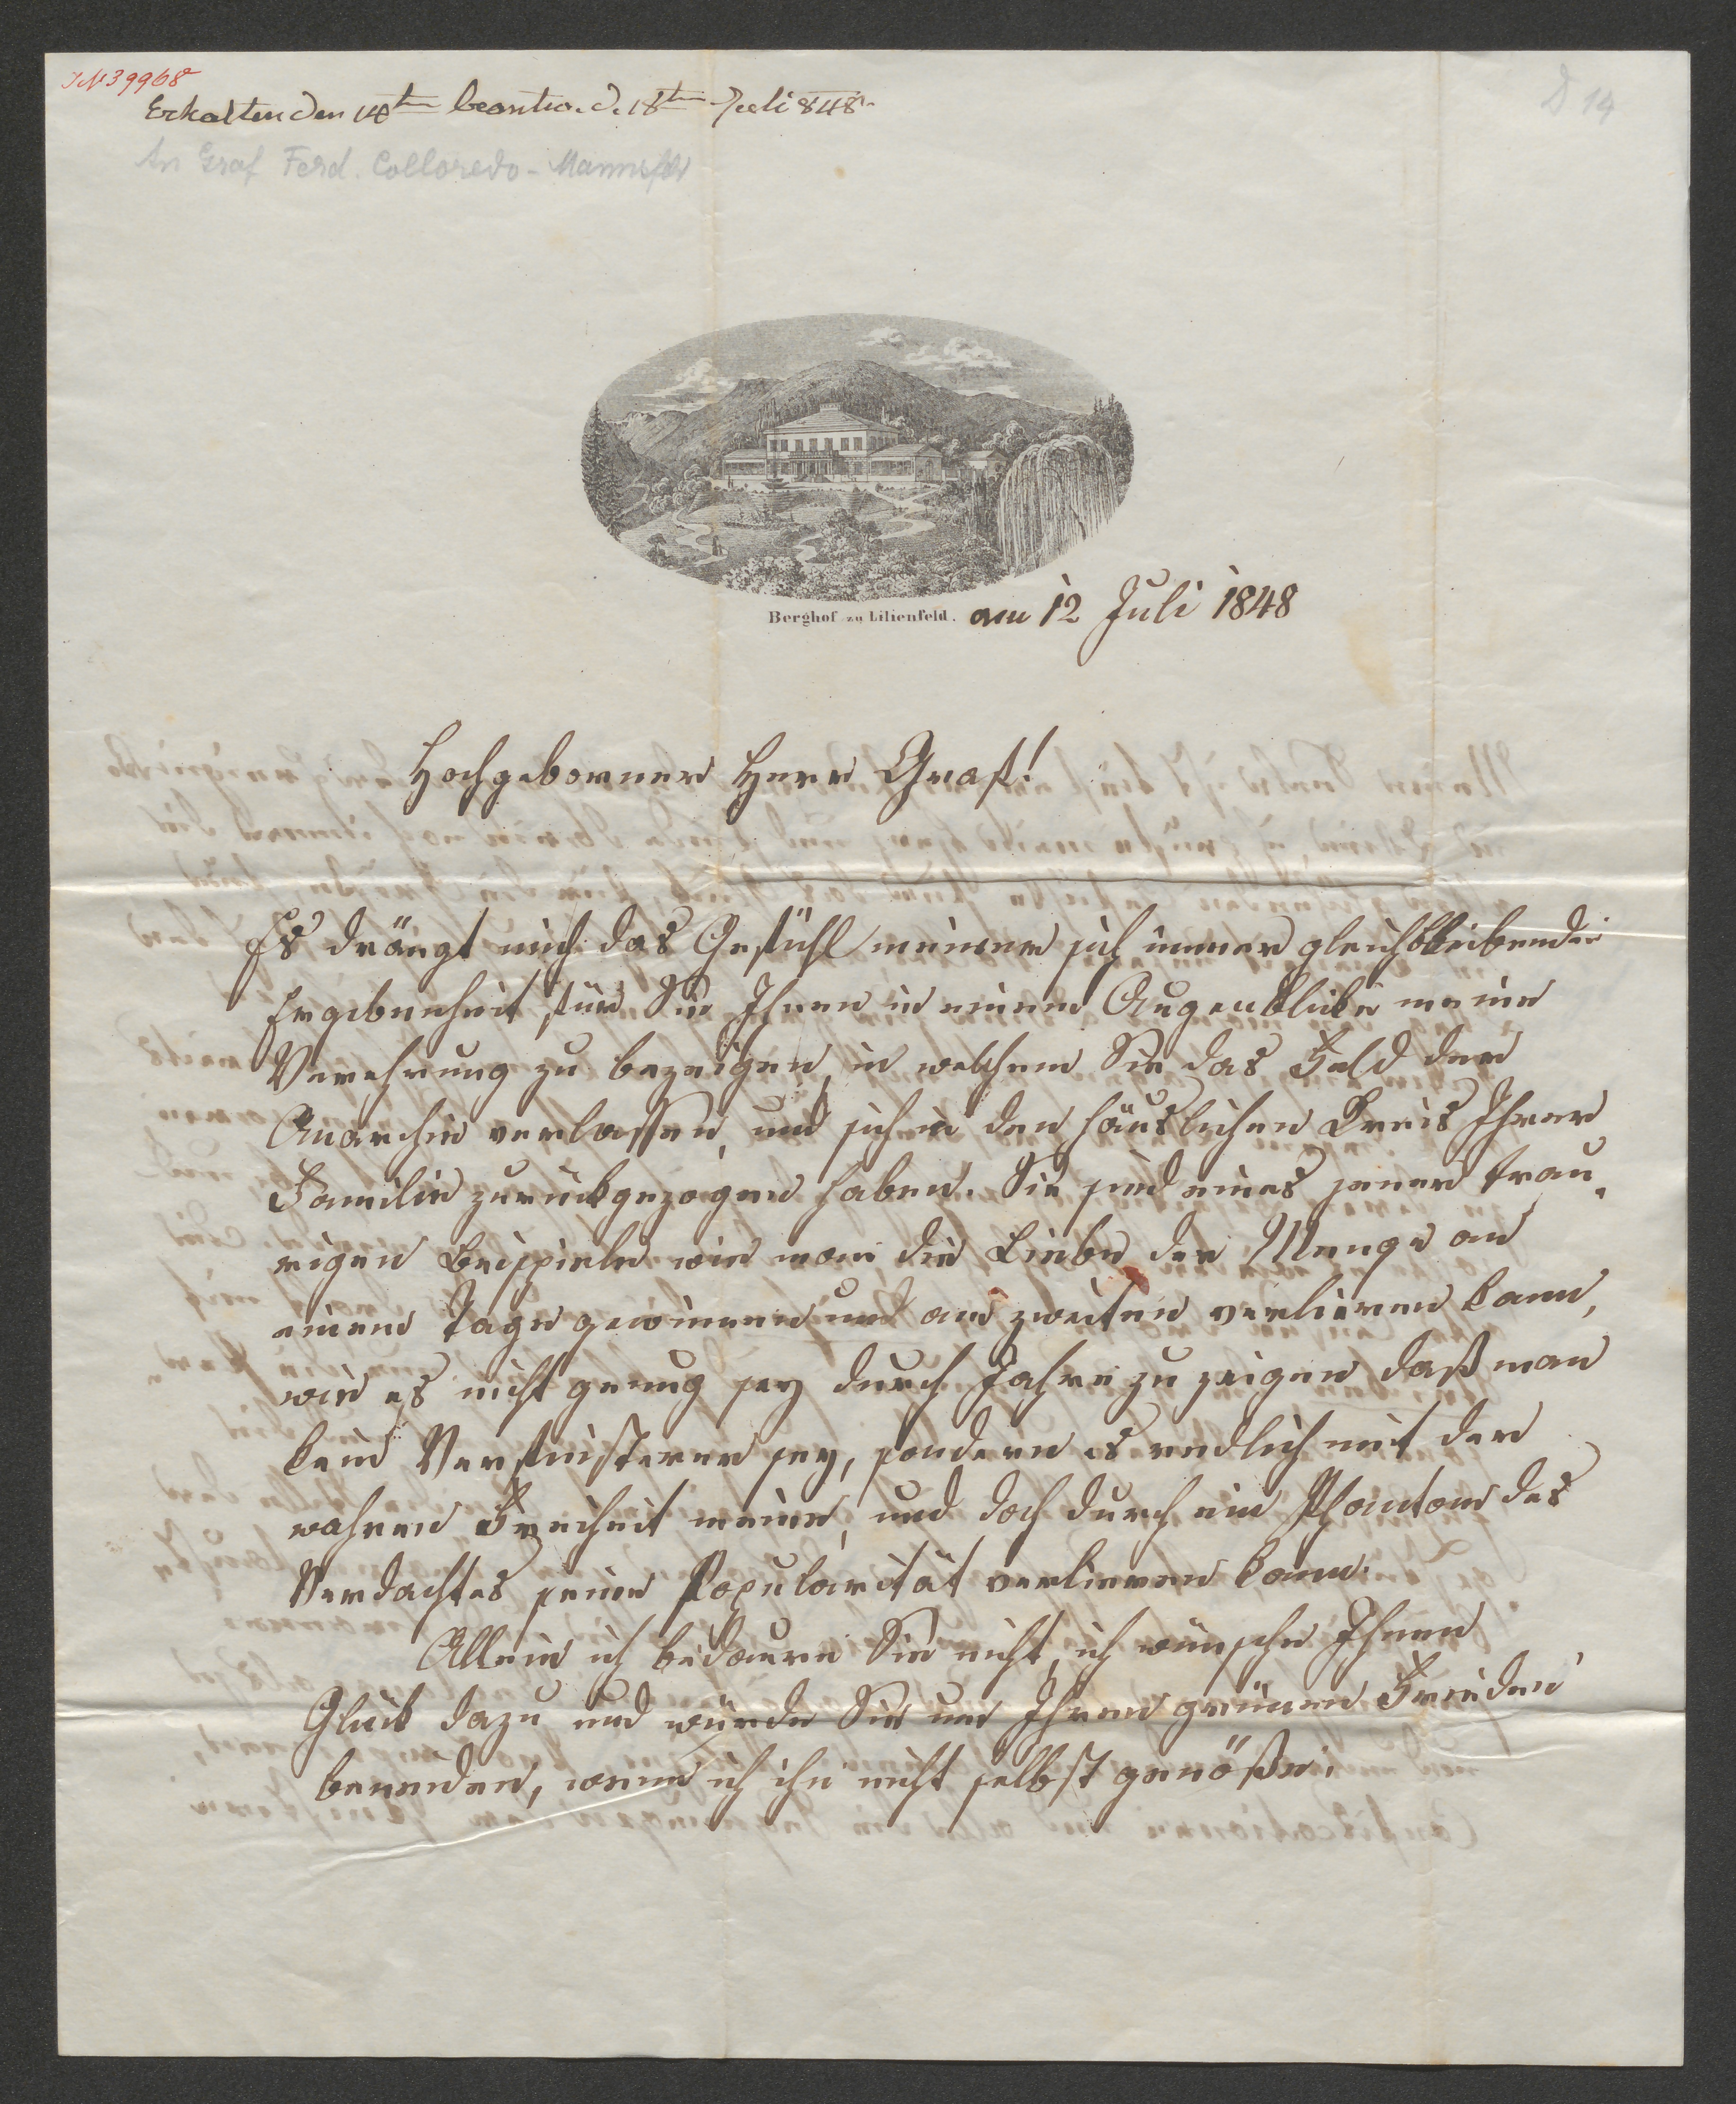 IN 39968
D 14
Erhalten den 14ten beantw. d. 18ten Juli 848
An Graf Ferd. Colloredo-Mannsfld
Berghof zu Lilienfeld. am 12 Juli 1848
Hochgeborner Herr Graf!
Es drängt mich das Gefühl meiner sich immer gleichbleibenden
Ergebenheit für Sie Ihnen in einem Augenblicke meine
Verehrung zu bezeigen, in welchem Sie das Feld der
Anarchie verlassen, und sich in den häuslichen Kreis Ihrer
Familie zurückgezogen haben. Sie sind eines jener trau-
rigen Beispiele wie man die Liebe der Menge an
einem Tage gewinnen und am zweiten verlieren kann,
wie es nicht genug sey durch Jahre zu zeigen daß man
kein Verfinsterer sey, sondern es redlich mit der
wahren Freiheit meine, und doch durch ein Phantom des
Verdachtes seine Popularität verlieren kann.
Allein ich bedaure Sie nicht, ich wünsche Ihnen
Glück dazu und würde Sie um Ihren grünen Frieden
beneiden, wenn ich ihn nicht selbst genöße.